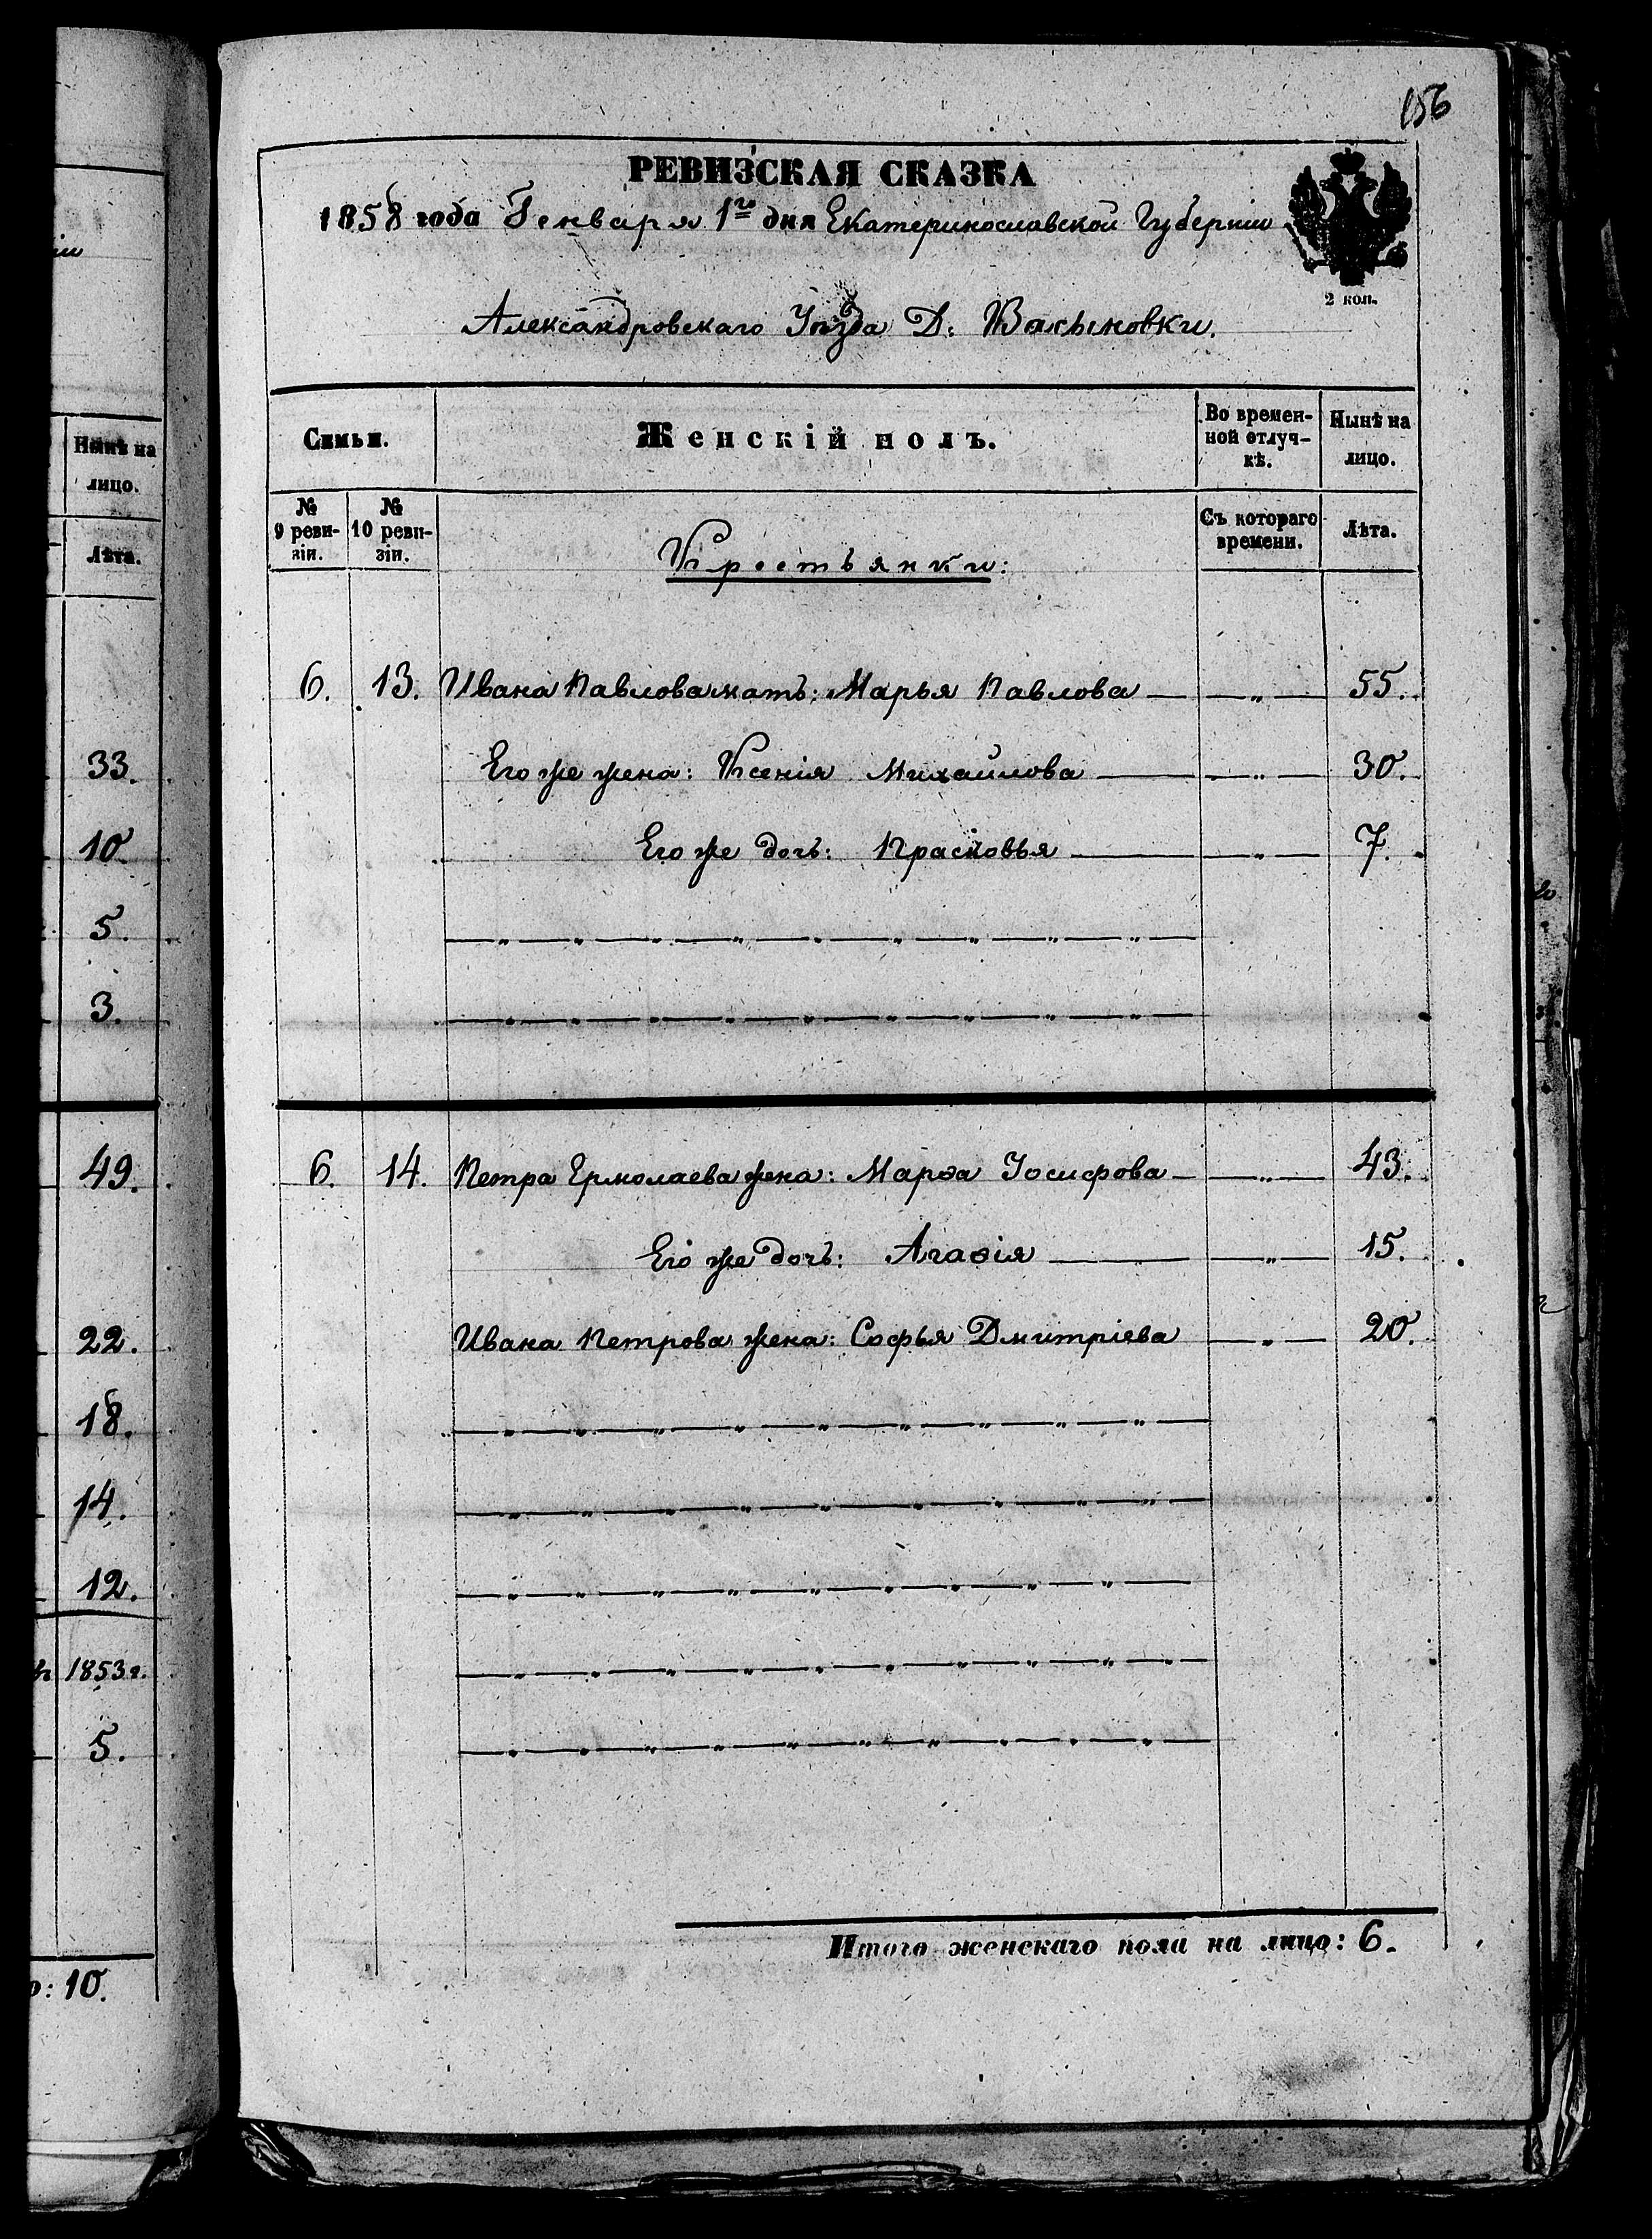 156
РЕВИЗСКАЯ СКАЗКА
1858 года Генваря 1го дня Екатеринославской Губерніи
2 коп.
Александровскаго Уѣзда Д:
Семьи.
Женскій полъ.
Во времен-
ной отлуч-
кѣ.
Нынѣ на
лицо.
№
9 реви-
зіи.
№
10 реви-
зіи.
Крестьянки:
Съ котораго
времени.
Лѣта.
6. 13. Ивана Павлова мать: Марья Павлова — „ — 55.
Его же жена: Ксенія Михайлова — „ — 30.
Его же дочь: Прасковья — „ — 7.
6. 14. Петра Ермолаева жена: Марѳа Іосифова — „ — 43.
Его же дочь: Агаѳія — „ — 15.
Ивана Петрова жена: Софья Дмитріева — „ — 20.
Итого женскаго пола на лицо: 6.
Нынѣ на
лицо.
Лѣта.
33.
10.
5.
3.
49.
22.
18.
14.
12.
1853 г.
5.
: 10.